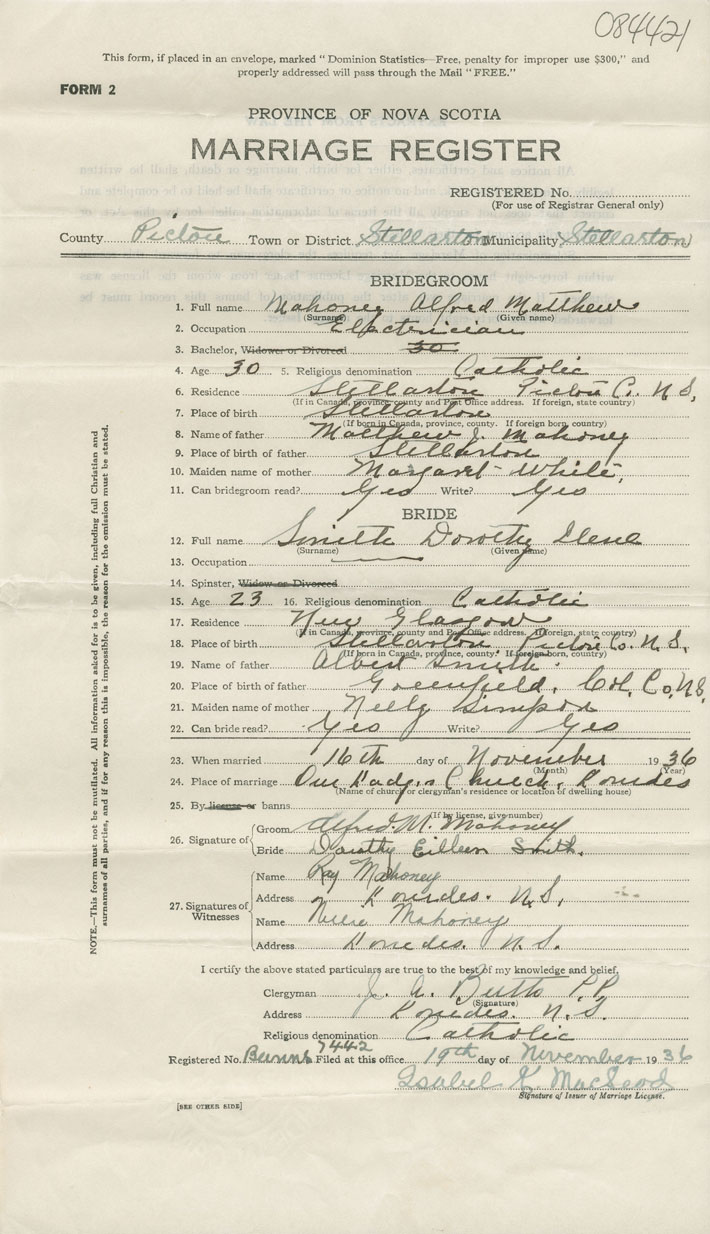 084421
This form, if placed in an envelope, marked "Dominion Statistics—Free, penalty for improper use $300," and
properly addressed will pass through the Mail "FREE."
FORM 2
PROVINCE OF NOVA SCOTIA
MARRIAGE REGISTER
REGISTERED No.
(For use of Registrar General only)
County Pictou Town or District Stellarton Municipality Stellarton
BRIDEGROOM
1. Full name Mahoney Alfred Matthew
(Surname) (Given name)
2. Occupation Electrician
3. Bachelor, Widower or Divorced 30
4. Age 30 5. Religious denomination Catholic
6. Residence Stellarton Pictou Co. N.S,
(If in Canada, province, county and Post Office address. If foreign, state country)
7. Place of birth Stellarton
(If born in Canada, province, county. If foreign born, country)
8. Name of father Matthew J. Mahoney
9. Place of birth of father Stellarton
10. Maiden name of mother Margaret White,
11. Can bridegroom read? Yes Write? Yes
BRIDE
12. Full name Smith Dorothy Ilene
(Surname) (Given name)
13. Occupation
14. Spinster, Widow or Divorced
15. Age 23 16. Religious denomination Catholic
17. Residence New Glasgow
(If in Canada, province, county and Post Office address. If foreign, state country)
18. Place of birth Stellarton Pictou Co. N.S,
(If born in Canada, province, county. If foreign born, country)
19. Name of father Albert Smith
20. Place of birth of father Greenfield, Col. Co, N.S.
21. Maiden name of mother Nelly Simpson
22. Can bride read? Yes Write? Yes
23. When married 16th day of November 1936
(Month) (Year)
24. Place of marriage Our Lady's Church, Lourdes
(Name of church or clergyman's residence or location of dwelling house)
25. By license or banns
(If by license, give number)
26. Signature of
Groom Alfred. M. Mahoney
Bride Dorothy Eilleen Smith.
27. Signatures of Witnesses
Name Ray Mahoney
Address Lourdes. N.S.
Name Mahoney
Address Lourdes. N.S.
I certify the above stated particulars are true to the best of my knowledge and belief,
Clergyman J. A. Butts P.P.
(Signature)
Address Lourdes. N.S.
Religious denomination Catholic
Registered No. Banns 7442 Filed at this office 19th day of November 1936
Isabel K MacLeod
Signature of Issuer of Marriage License.
[SEE OTHER SIDE]
NOTE.—This form must not be mutilated. All information asked for is to be given, including full Christian and
surnames of all parties, and if for any reason this is impossible, the reason for the omission must be stated.